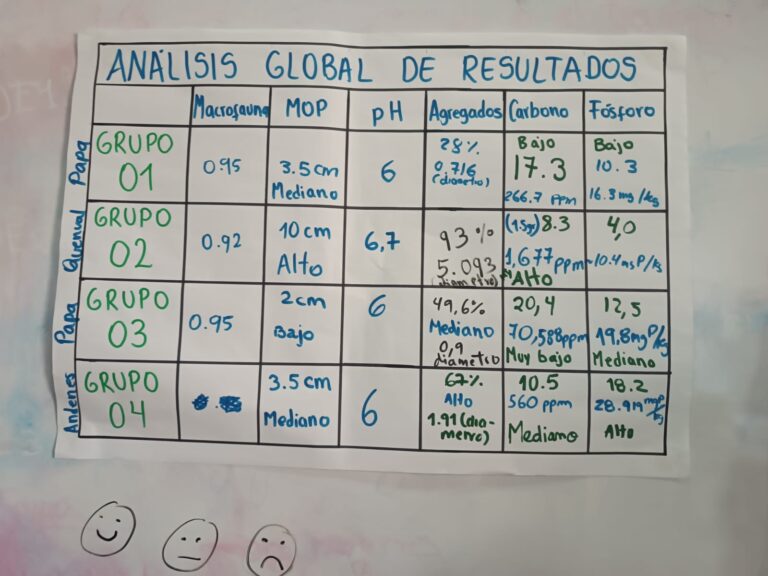 ANÁLISIS GLOBAL DE RESULTADOS
Macrofauna MOP pH Agregados Carbono Fósforo
Papa
GRUPO
01
0.95
3.5cm
Mediano
6
28%
0.716
(diametro)
Bajo
17.3
266.7 ppm
Bajo
10.3
16.3 mg/kg
Quenual
GRUPO
02
0.92
10 cm
Alto
6,7
93%
5.093
(diametro)
(1.5g) 8.3
1,677 ppm
Alto
4,0
~10.4 mg P/kg
Papa
GRUPO
03
0.95
2cm
Bajo
6
49,6%
Mediano
0,9
diámetro
20,4
70,588ppm
Muy bajo
12,5
19,8mg P/kg
Mediano
Andenes
GRUPO
04
3.5cm
Mediano
6
67%
Alto
1.91 (dia-
metro)
10.5
560 ppm
Mediano
18.2
Alto